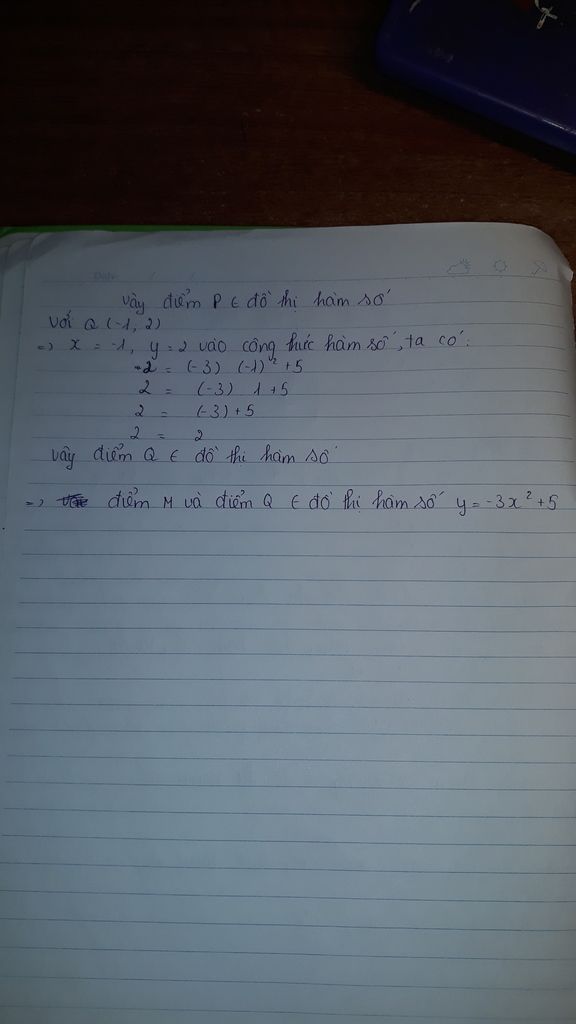 vậy điểm P ∈ đồ thị hàm số
Với Q (-1, 2)
=> x = -1, y = 2 vào công thức hàm số, ta có:
2 = (-3) (-1)² + 5
2 = (-3) 1 + 5
2 = (-3) + 5
2 = 2
vậy điểm Q ∈ đồ thị hàm số
=> điểm M và điểm Q ∈ đồ thị hàm số y = -3x² + 5